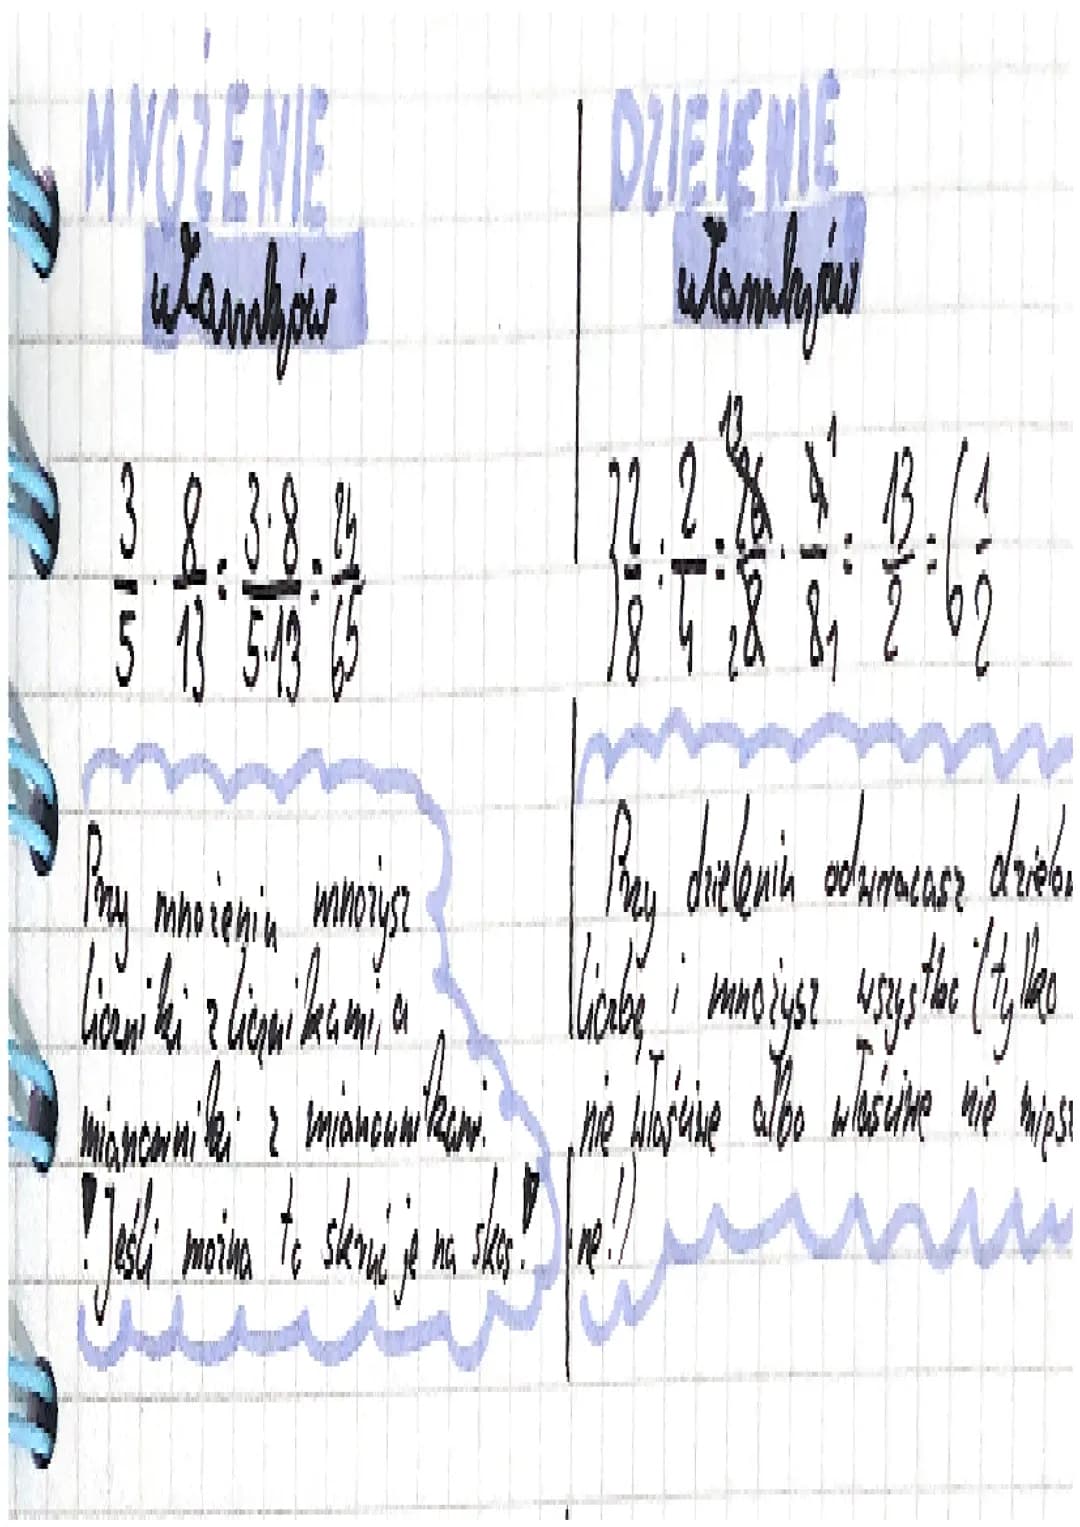 MNOŻENIE
ułamków
3/5 · 8/13 = 3·8/5·13 = 24/65
Przy mnożeniu mnożysz
liczniki z licznikami, a
mianowniki z mianownikami.
! Jeśli można to skróć je na skos!
DZIELENIE
ułamków
: 2/4 = · = 13/2 = 6 1/2
Przy dzieleniu odwracasz
liczbę i mnożysz wszystko (tylko
nie właściwe albo właściwe nie
ne!)